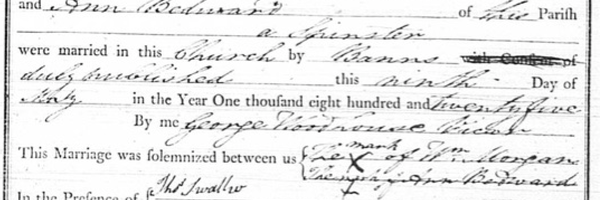 and Ann Bedward of this Parish
a Spinster
were married in this Church by Banns with Consent of
duly published this ninth Day of
in the Year One thousand eight hundred and twenty five
By me George Woodhouse Vicar
This Marriage was solemnized between us The X mark of Wm. Morgan
The mark of Ann Bedward
X
In the Presence of Thos. Swallow